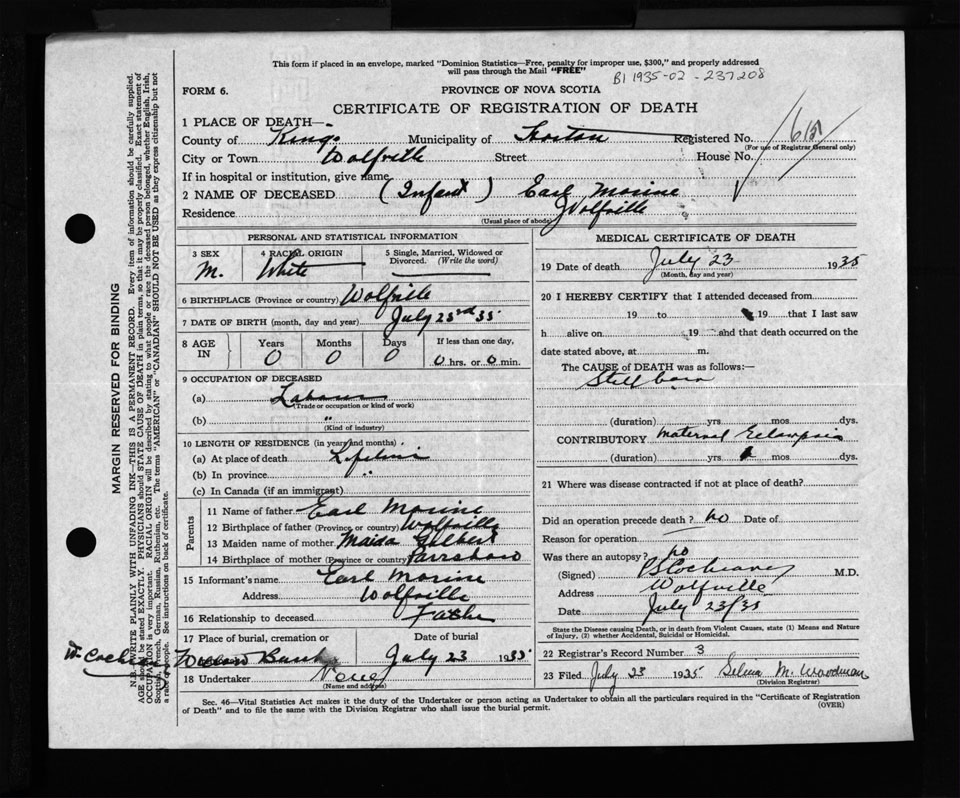 This form if placed in an envelope, marked "Dominion Statistics—Free, penalty for improper use, $300," and properly addressed
will pass through the Mail "FREE"
B1 1935-02-237208
FORM 6.
PROVINCE OF NOVA SCOTIA
CERTIFICATE OF REGISTRATION OF DEATH
1 PLACE OF DEATH—
County of Kings Municipality of Horton Registered No.
(For use of Registrar General only)
City or Town Wolfville Street House No.
If in hospital or institution, give name
2 NAME OF DECEASED (Infant) Earl Morine
Residence Wolfville
(Usual place of abode)
PERSONAL AND STATISTICAL INFORMATION
3 SEX
M.
4 RACIAL ORIGIN
White
5 Single, Married, Widowed or
Divorced. (Write the word)
6 BIRTHPLACE (Province or country) Wolfville
7 DATE OF BIRTH (month, day and year) July 23rd 35
8 AGE
IN
Years
0
Months
0
Days
0
If less than one day,
0 hrs. or 0 min.
9 OCCUPATION OF DECEASED
(a)
(Trade or occupation or kind of work)
(b) "
(Kind of industry)
10 LENGTH OF RESIDENCE (in years and months)
(a) At place of death
(b) In province "
(c) In Canada (if an immigrant)
Parents
11 Name of father Earl Morine
12 Birthplace of father (Province or country) Wolfville
13 Maiden name of mother Maida Gilbert
14 Birthplace of mother (Province or country) Parrsboro
15 Informant's name Earl Morine
Address Wolfville
16 Relationship to deceased Father
17 Place of burial, cremation or
Date of burial
July 23 1935
18 Undertaker None
(Name and address)
MEDICAL CERTIFICATE OF DEATH
19 Date of death July 23 1935
(Month, day and year)
20 I HEREBY CERTIFY that I attended deceased from
19 to 19 that I last saw
h alive on 19 and that death occurred on the
date stated above, at m.
The CAUSE of DEATH was as follows:—
Stillborn
(duration) yrs. mos. dys.
CONTRIBUTORY Maternal Eclampsia
(duration) yrs. mos. dys.
21 Where was disease contracted if not at place of death?
Did an operation precede death? No Date of
Reason for operation
Was there an autopsy? No
(Signed) M.D.
Address Wolfville
Date July 23/35
State the Disease causing Death, or in death from Violent Causes, state (1) Means and Nature
of Injury, (2) whether Accidental, Suicidal or Homicidal.
22 Registrar's Record Number 3
23 Filed July 23 1935 Selina M. Woodman
(Division Registrar)
Sec. 46—Vital Statistics Act makes it the duty of the Undertaker or person acting as Undertaker to obtain all the particulars required in the "Certificate of Registration
of Death" and to file the same with the Division Registrar who shall issue the burial permit.
(OVER)
MARGIN RESERVED FOR BINDING
N.B.—WRITE PLAINLY WITH UNFADING INK—THIS IS A PERMANENT RECORD. Every item of information should be carefully supplied.
AGE should be stated EXACTLY. PHYSICIANS should STATE CAUSE OF DEATH in plain terms, so that it may be properly classified. Exact statement of
OCCUPATION is very important. RACIAL ORIGIN will be described by stating to what people or race the deceased person belonged, whether English, Irish,
Scottish, French, German, Russian, Ruthenian, etc. The terms "AMERICAN" or "CANADIAN" SHOULD NOT BE USED as they express citizenship but not
a race or people. See instructions on back of certificate.